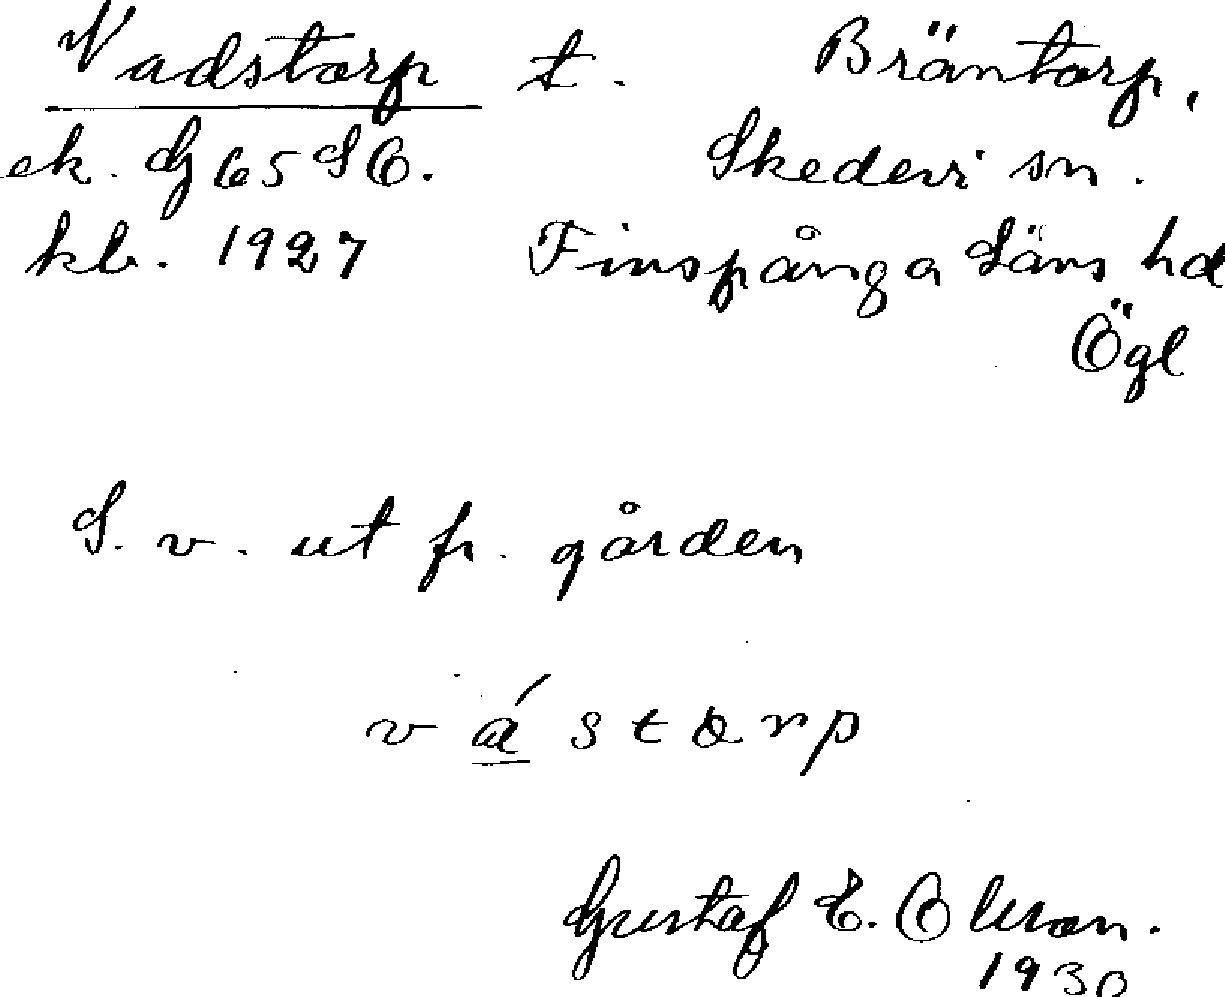 Vadstorp t. Bräntorp,
ek. G 65 SO. Skedevi sn.
kb. 1927 Finspånga Läns hd
Ögl
S. v. ut fr. gården
v á s t o r p
Gustaf E. Olsson.
1930